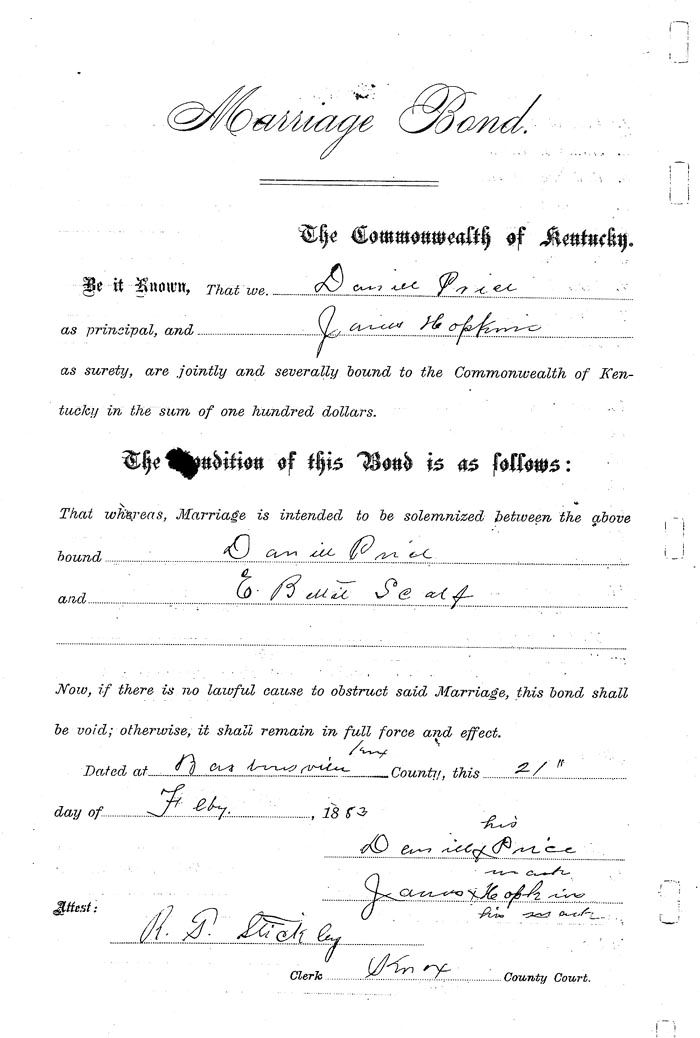 Marriage Bond.
The Commonwealth of Kentucky.
Be it Known, That we Daniel Price
as principal, and James Hopkins
as surety, are jointly and severally bound to the Commonwealth of Ken-
tucky in the sum of one hundred dollars.
The Condition of this Bond is as follows:
That whereas, Marriage is intended to be solemnized between the above
bound Daniel Price
and E. Scalf
Now, if there is no lawful cause to obstruct said Marriage, this bond shall
be void; otherwise, it shall remain in full force and effect.
Knox
Dated at Barbourville County, this 21"
day of Feby. , 1883
his
Daniel x Price
mark
James x Hopkins
his mark
Attest:
R. Stickley
Clerk Knox County Court.